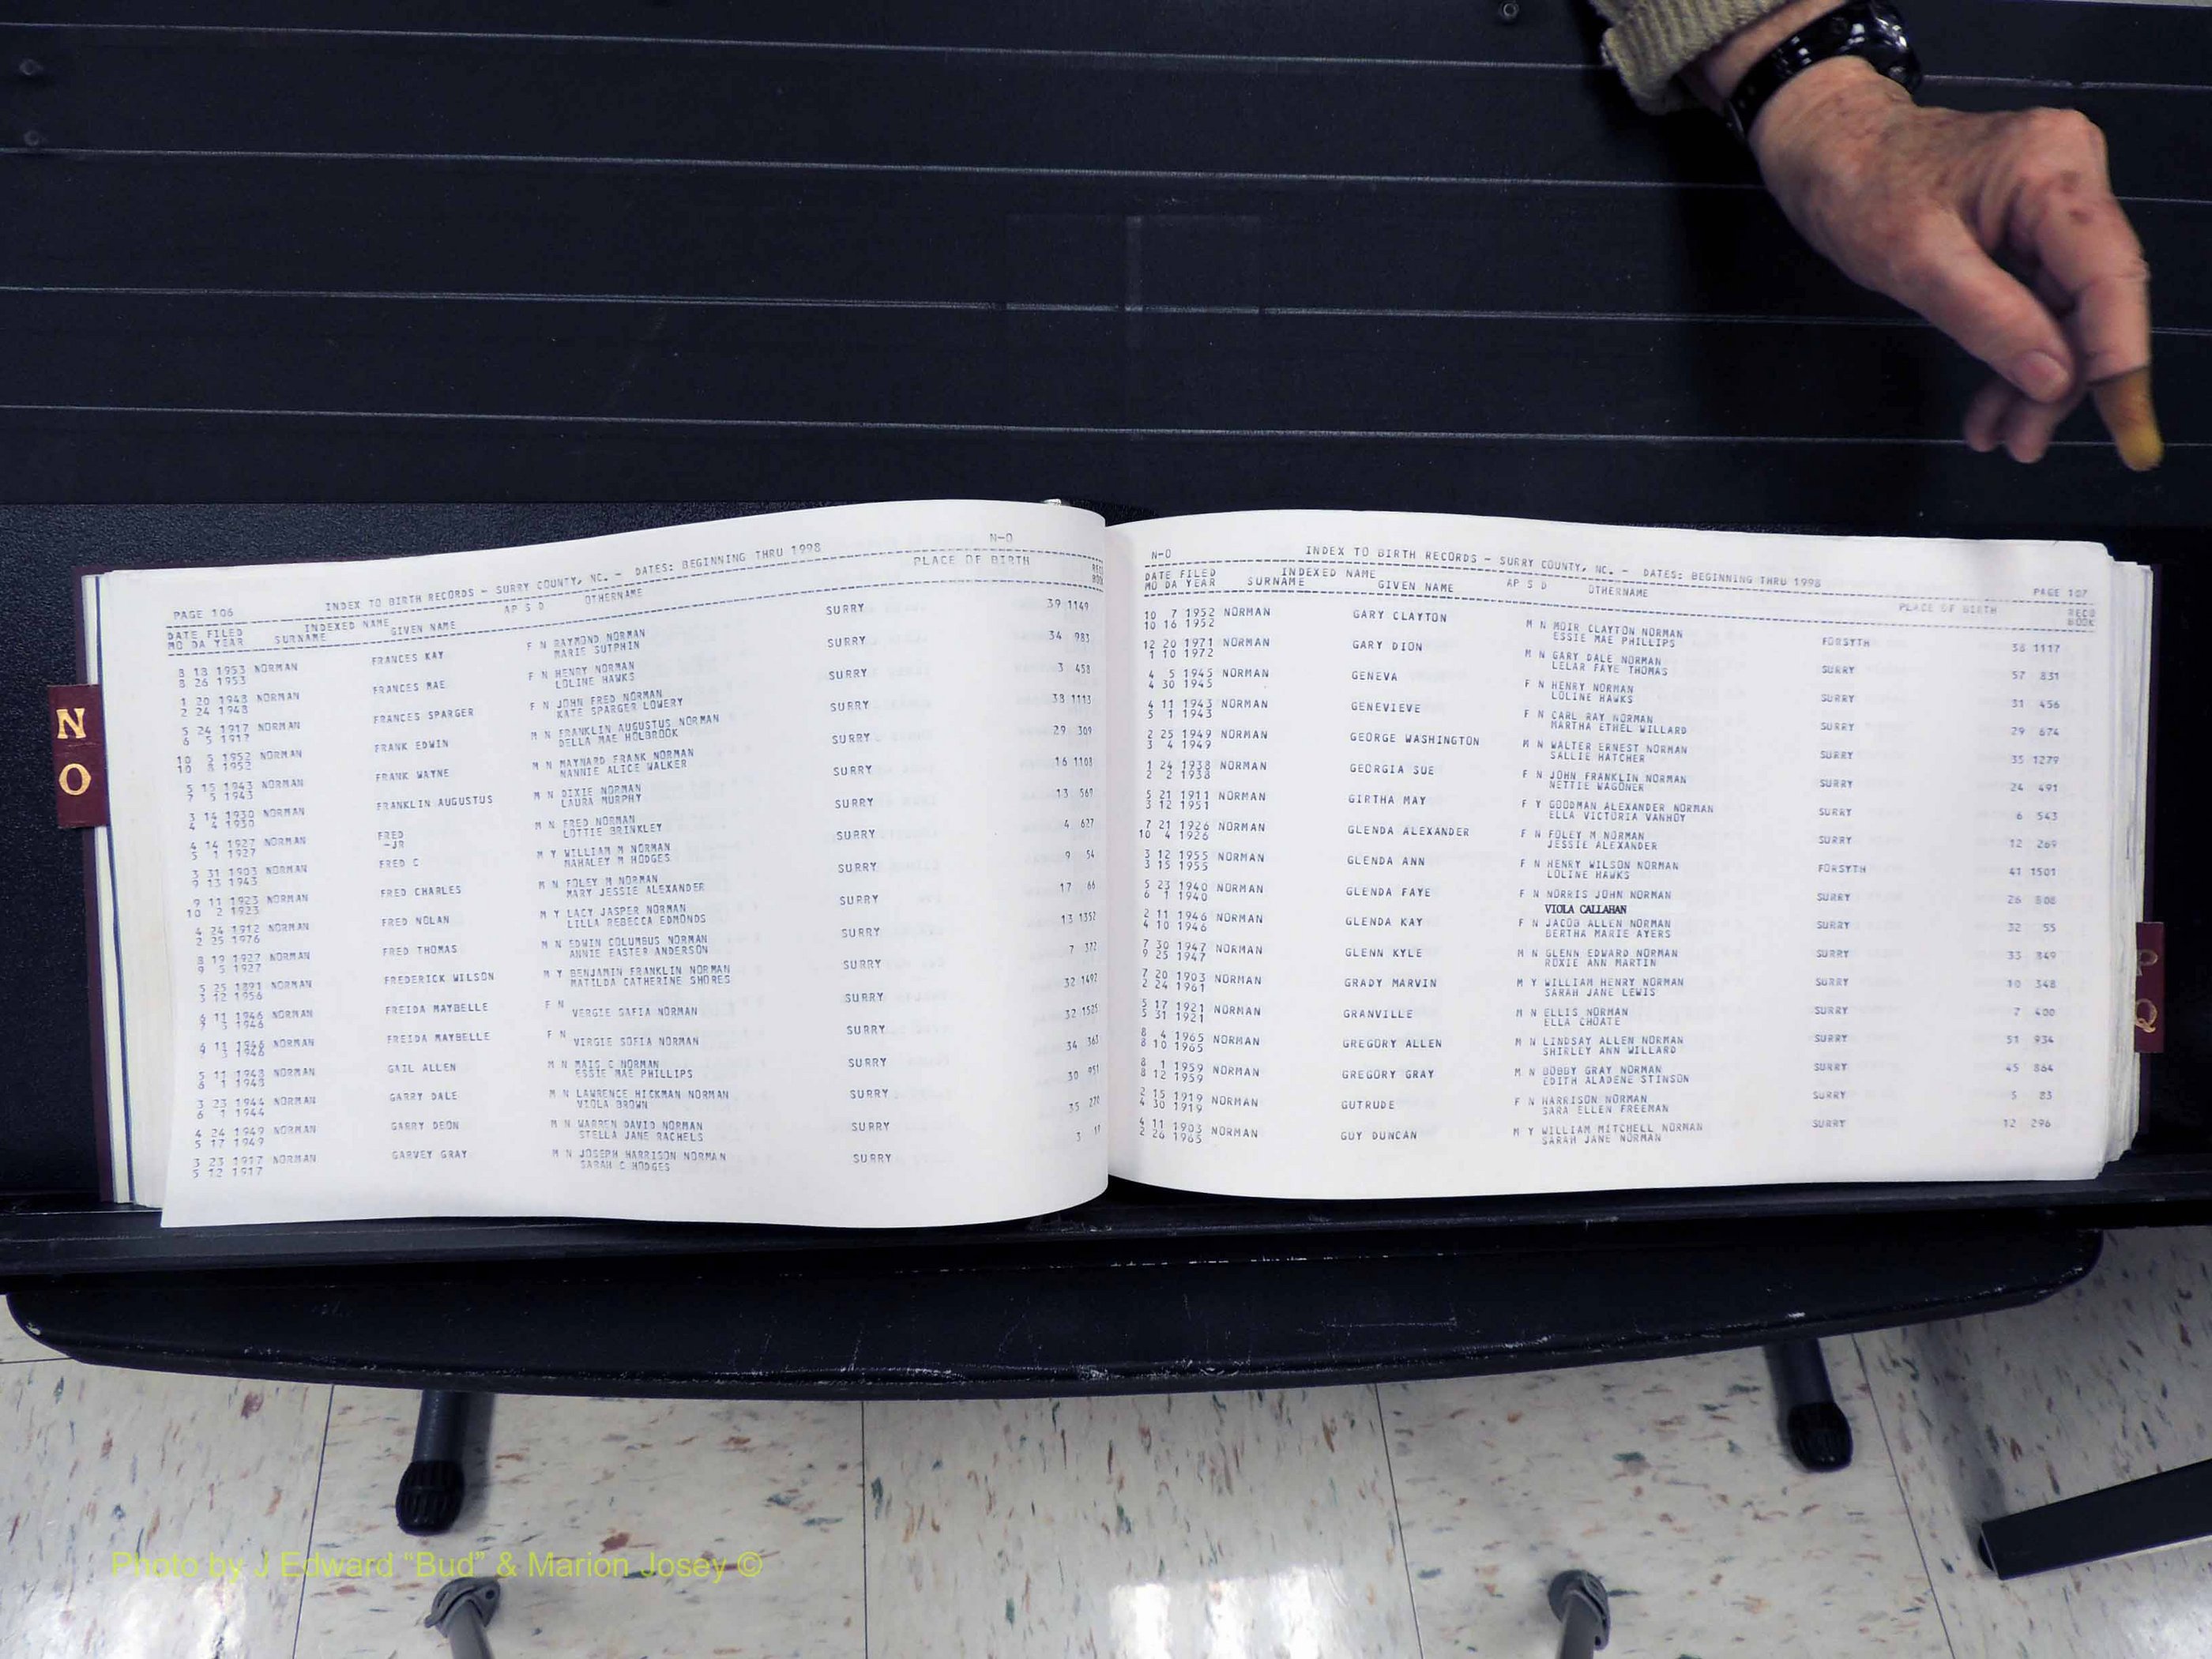 N
O
PAGE 106
INDEX TO BIRTH RECORDS - SURRY COUNTY, NC. - DATES: BEGINNING THRU 1998
N-O
DATE FILED INDEXED NAME AP S D OTHERNAME PLACE OF BIRTH RECD
MO DA YEAR SURNAME GIVEN NAME BOOK
8 18 1953 NORMAN FRANCES KAY F N RAYMOND NORMAN SURRY 39 1149
8 26 1953 MARIE SUTPHIN
1 20 1948 NORMAN FRANCES MAE F N HENRY NORMAN SURRY 34 983
2 24 1948 LOLINE HAWKS
5 24 1917 NORMAN FRANCES SPARGER F N JOHN FRED NORMAN SURRY 3 458
6 5 1917 KATE SPARGER LOWERY
10 5 1952 NORMAN FRANK EDWIN M N FRANKLIN AUGUSTUS NORMAN SURRY 38 1113
10 8 1952 DELLA MAE HOLBROOK
5 15 1943 NORMAN FRANK WAYNE M N MAYNARD FRANK NORMAN SURRY 29 309
7 5 1943 NANNIE ALICE WALKER
3 14 1930 NORMAN FRANKLIN AUGUSTUS M N DIXIE NORMAN SURRY 16 1108
4 4 1930 LAURA MURPHY
4 14 1927 NORMAN FRED M N FRED NORMAN SURRY 13 561
5 1 1927 -JR LOTTIE BRINKLEY
3 31 1903 NORMAN FRED C M Y WILLIAM M NORMAN SURRY 4 627
9 13 1943 MAHALEY M HODGES
9 11 1923 NORMAN FRED CHARLES M N FOLEY M NORMAN SURRY 9 54
10 2 1923 MARY JESSIE ALEXANDER
4 24 1912 NORMAN FRED NOLAN M Y LACY JASPER NORMAN SURRY 17 66
2 25 1976 LILLA REBECCA EDMONDS
8 19 1927 NORMAN FRED THOMAS M N EDWIN COLUMBUS NORMAN SURRY 13 1352
9 5 1927 ANNIE EASTER ANDERSON
5 25 1891 NORMAN FREDERICK WILSON M Y BENJAMIN FRANKLIN NORMAN SURRY 7 372
3 12 1956 MATILDA CATHERINE SHORES
6 11 1946 NORMAN FREIDA MAYBELLE F N SURRY 32 1497
7 3 1946 VERGIE SAFIA NORMAN
6 11 1946 NORMAN FREIDA MAYBELLE F N SURRY 32 1525
9 3 1946 VIRGIE SOFIA NORMAN
5 11 1948 NORMAN GAIL ALLEN M N MAIS C NORMAN SURRY 34 361
6 1 1948 ESSIE MAE PHILLIPS
3 23 1944 NORMAN GARRY DALE M N LAWRENCE HICKMAN NORMAN SURRY 30 951
6 1 1944 VIOLA BROWN
4 24 1949 NORMAN GARRY DEON M N WARREN DAVID NORMAN SURRY 35
5 17 1949 STELLA JANE RACHELS
3 23 1917 NORMAN GARVEY GRAY M N JOSEPH HARRISON NORMAN SURRY 3
5 12 1917 SARAH C HODGES
N-O
INDEX TO BIRTH RECORDS - SURRY COUNTY, NC. - DATES: BEGINNING THRU 1998
PAGE 107
DATE FILED INDEXED NAME AP S D OTHERNAME PLACE OF BIRTH RECD
MO DA YEAR SURNAME GIVEN NAME BOOK
10 7 1952 NORMAN GARY CLAYTON M N MOIR CLAYTON NORMAN FORSYTH 38 1117
10 16 1952 ESSIE MAE PHILLIPS
12 20 1971 NORMAN GARY DION M N GARY DALE NORMAN SURRY 57 831
1 10 1972 LELAR FAYE THOMAS
4 5 1945 NORMAN GENEVA F N HENRY NORMAN SURRY 31 456
4 30 1945 LOLINE HAWKS
4 11 1943 NORMAN GENEVIEVE F N CARL RAY NORMAN SURRY 29 674
5 1 1943 MARTHA ETHEL WILLARD
2 25 1949 NORMAN GEORGE WASHINGTON M N WALTER ERNEST NORMAN SURRY 35 1279
3 4 1949 SALLIE HATCHER
1 24 1938 NORMAN GEORGIA SUE F N JOHN FRANKLIN NORMAN SURRY 24 491
2 2 1938 NETTIE WAGONER
5 21 1911 NORMAN GIRTHA MAY F Y GOODMAN ALEXANDER NORMAN SURRY 6 543
3 12 1951 ELLA VICTORIA VANHOY
7 21 1926 NORMAN GLENDA ALEXANDER F N FOLEY M NORMAN SURRY 12 269
10 4 1926 JESSIE ALEXANDER
3 12 1955 NORMAN GLENDA ANN F N HENRY WILSON NORMAN FORSYTH 41 1501
3 15 1955 LOLINE HAWKS
5 23 1940 NORMAN GLENDA FAYE F N NORRIS JOHN NORMAN SURRY 26 808
6 1 1940 VIOLA CALLAHAN
2 11 1946 NORMAN GLENDA KAY F N JACOB ALLEN NORMAN SURRY 32 55
4 10 1946 BERTHA MARIE AYERS
7 30 1947 NORMAN GLENN KYLE M N GLENN EDWARD NORMAN SURRY 33 849
9 25 1947 ROXIE ANN MARTIN
7 20 1903 NORMAN GRADY MARVIN M Y WILLIAM HENRY NORMAN SURRY 10 348
2 24 1961 SARAH JANE LEWIS
5 17 1921 NORMAN GRANVILLE M N ELLIS NORMAN SURRY 7 400
5 31 1921 ELLA CHOATE
8 4 1965 NORMAN GREGORY ALLEN M N LINDSAY ALLEN NORMAN SURRY 51 934
8 10 1965 SHIRLEY ANN WILLARD
8 1 1959 NORMAN GREGORY GRAY M N BOBBY GRAY NORMAN SURRY 45 864
8 12 1959 EDITH ALADENE STINSON
2 15 1919 NORMAN GUTRUDE F N HARRISON NORMAN SURRY 5 83
4 30 1919 SARA ELLEN FREEMAN
4 11 1903 NORMAN GUY DUNCAN M Y WILLIAM MITCHELL NORMAN SURRY 12 296
2 26 1965 SARAH JANE NORMAN
Q
Photo by J Edward “Bud” & Marion Josey ©